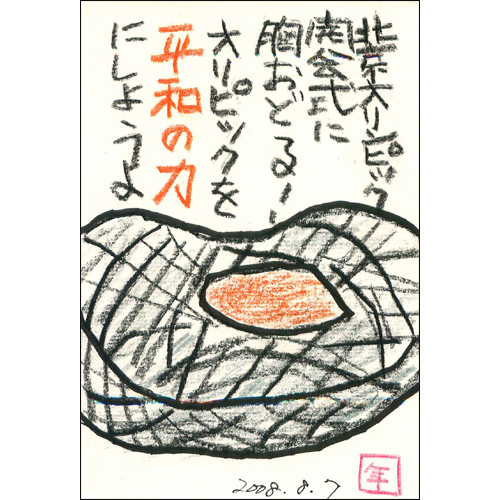 北京オリンピック
開会式に
胸おどる！！
オリピックを
平和の力
にしようよ
2008.8.7
年